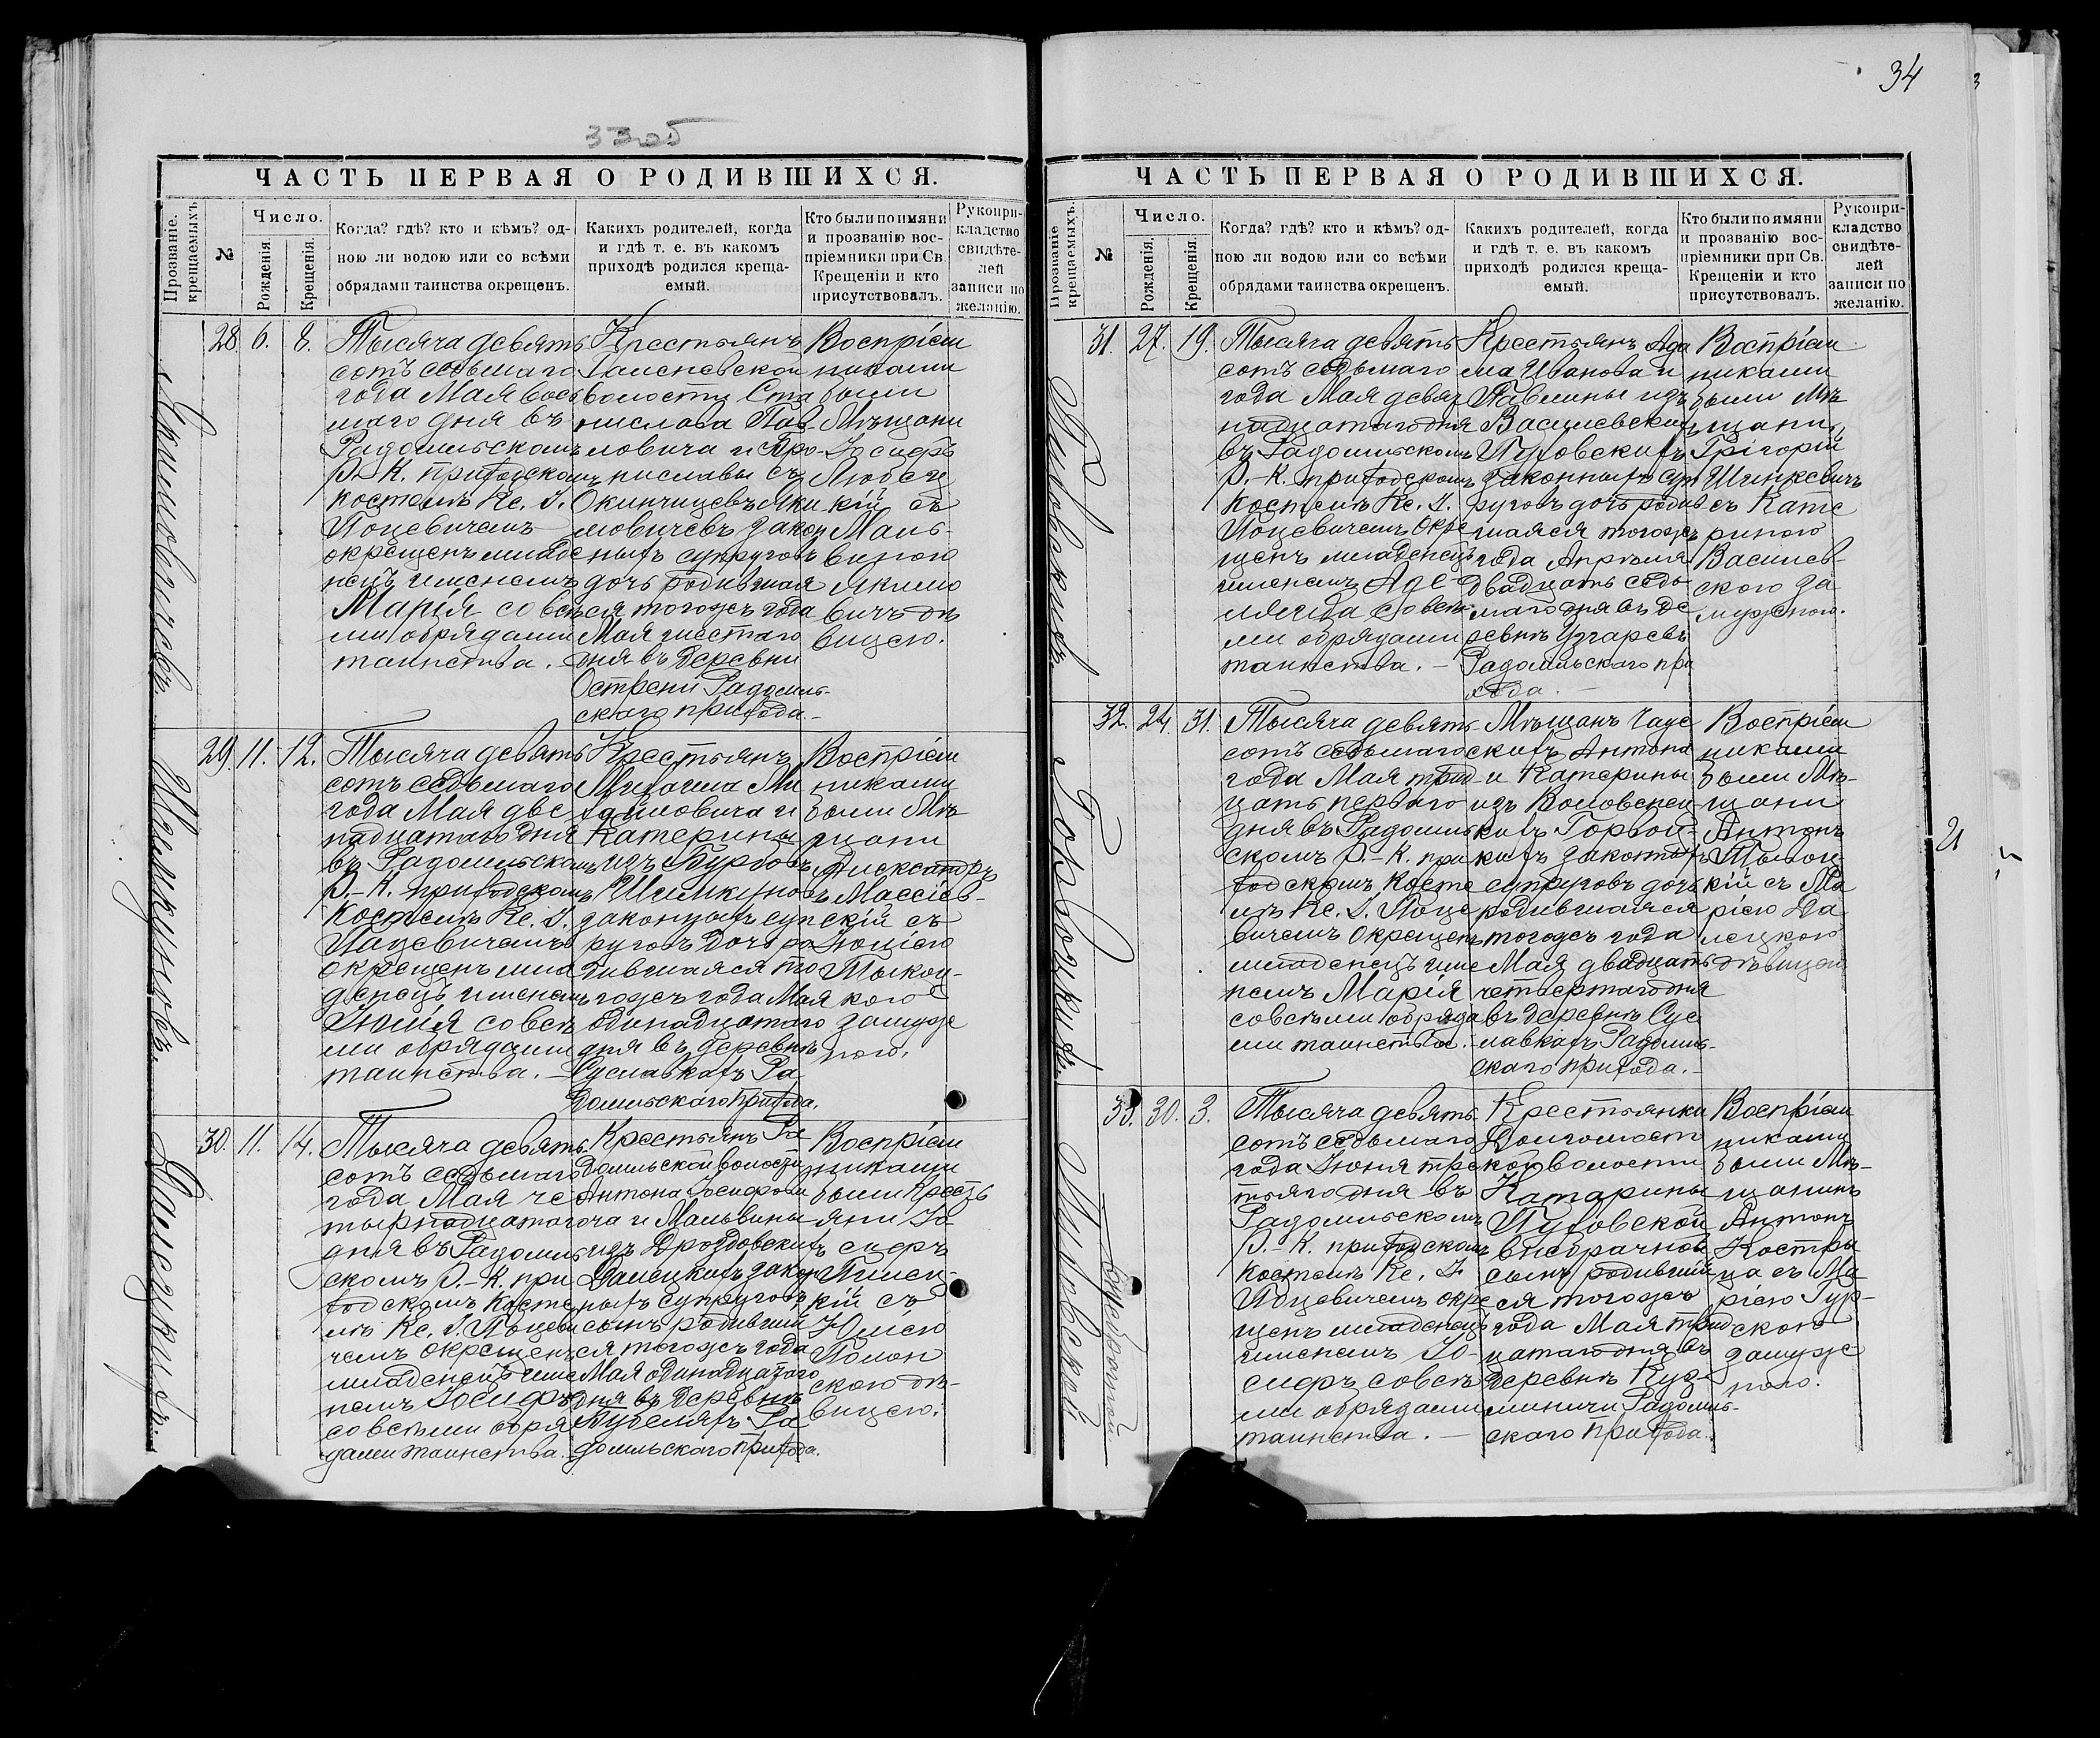 33об
ЧАСТЬ ПЕРВАЯ О РОДИВШИХСЯ.
Прозваніе. крещаемыхъ.
№
Число.
Рожденія.
Крещенія.
Когда? гдѣ? кто и кѣмъ? од-
ною ли водою или со всѣми
обрядами таинства окрещенъ.
Какихъ родителей, когда
и гдѣ т. е. въ какомъ
приходѣ родился креща-
емый.
Кто были по имяни
и прозванію вос-
пріемники при Св.
Крещеніи и кто
присутствовалъ.
Рукопри-
кладство
свидѣте-
лей
записи по
желанію.
Якимовичевъ.
28. 6. 8.
Тысяча девять
сотъ седьмаго
года Мая вось
маго дня въ
Радомльскомъ
Р.-К. приходскомъ
костелѣ Кс. І.
Поцевичемъ
окрещенъ младе
нецъ именемъ
Марія со всѣ
ми обрядами
таинства.
Крестьянъ
волости Ста
нислава Пав
ловича и Бро-
ниславы съ
Окинчицевъ Яки
мовичевъ закон
ныхъ супруговъ
дочь родившая
ся тогожъ года
Мая шестаго
дня въ деревни
Острени Радомль-
скаго прихода.
Воспріем
никами
были
Мѣщани
Іосифъ
кій съ
Маль-
виною
Якимо
вичъ дѣ
вицею.
Шемякиновъ.
29. 11. 12.
Тысяча девять
сотъ седьмаго
года Мая две
надцатаго дня
въ Радомльскомъ
Р.-К. приходскомъ
Костелѣ Кс. І.
Пацевичемъ
окрещенъ мла
денецъ именемъ
Юлія со всѣ
ми обрядами
таинства.
Крестьянъ
Михаила Ми
хайловича и
Катерины
изъ
законныхъ суп
руговъ дочь ро
дившаяся то
гожъ года Мая
одинадцатаго
дня въ деревнѣ
Суславкахъ Ра
домльскаго прихода.
Воспріем
никами
были Мѣ
щани
Александръ
скій съ
Юліею
кою
замуж
ною.
Далецкихъ.
30. 11. 14.
Тысяча девять
сотъ седьмаго
года Мая че
тырнадцатаго
дня въ Радомль
скомъ Р.-К. при
ходскомъ косте
лѣ Кс. І. Поцеви
чемъ окрещенъ
младенецъ име
немъ Іосифъ
со всѣми обря
дами таинства.
Крестьянъ Ра
домльской волости
Антона Іосифови
ча и Мальвины
изъ Дроздовскихъ
Далецкихъ закон
ныхъ супруговъ
сынъ родивший
ся тогожъ года
Мая одинадцатаго
дня въ деревнѣ
Ра
домльскаго прихода.
Воспріем
никами
были Кресть
яни Іо-
сифъ
кій съ
Юлею
скою дѣ-
вицею.
34
ЧАСТЬ ПЕРВАЯ О РОДИВШИХСЯ.
Прозваніе крещаемыхъ.
№
Число.
Рожденія.
Крещенія.
Когда? гдѣ? кто и кѣмъ? од-
ною ли водою или со всѣми
обрядами таинства окрещенъ.
Какихъ родителей, когда
и гдѣ т. е. въ какомъ
приходѣ родился креща-
емый.
Кто были по имяни
и прозванію вос-
пріемники при Св.
Крещеніи и кто
присутствовалъ.
Рукопри-
кладство
свидѣте-
лей
записи по
желанію.
31. 27. 19.
Тысяча девять
сотъ седьмаго
года Мая девят
надцатаго дня
въ Радомльскомъ
Р.-К. приходскомъ
Костелѣ Кс. І.
Поцевичемъ окре
щенъ младенецъ
именемъ Аде
лаида со всѣ
ми обрядами
таинства.
Крестьянъ Ада
ма Иванова и
Павлины изъ
Василевскихъ
законныхъ суп
руговъ дочь родив
шаяся тогожъ
года Апрѣля
двадцать седь
маго дня въ де
ревнѣ
Радомльскаго при
хода.
Воспріем
никами
были Мѣ
щани
Грігорій
Шинкевичъ
съ Кате
риною
Василев
скою за
мужною.
32. 24. 31.
Тысяча девять
сотъ седьмаго
года Мая трид-
цать перваго
дня въ Радомль
скомъ Р.-К. при
ходскомъ Косте
лѣ Кс. І. Поце
вичемъ окрещенъ
младенецъ име
немъ Марія
со всѣми обряда
ми таинства.
Мѣщанъ Чаус
скихъ Антона
и Катерины
изъ
законныхъ
супруговъ дочь
родившаяся
тогожъ года
Мая двадцать
четвертаго дня
въ деревнѣ Сус
лавкахъ Радомль-
скаго прихода.
Воспріем
никами
были Мѣ-
щани
Антонъ
кій съ Ма
ріею Да
лецкою
дѣвицею
21
Внѣбрачной.
33. 30. 3.
Тысяча девять
сотъ седьмаго
года Іюня тре
тяго дня въ
Радомльскомъ
Р.-К. приходскомъ
костелѣ Кс. І.
Поцевичемъ окре
щенъ младенецъ
именемъ Іо-
сифъ со всѣ
ми обрядами
таинства.
Крестьянки
кой волости
Катарины
внебрачной
сынъ родивший
ся тогожъ
года Мая трид
цатаго дня въ
деревнѣ Куз-
миничи Радомль-
скаго прихода.
Воспріем
никами
были Мѣ-
щанинъ
Антонъ
Костры
ца съ Ма
ріею Гур-
скою
замуж
ною.